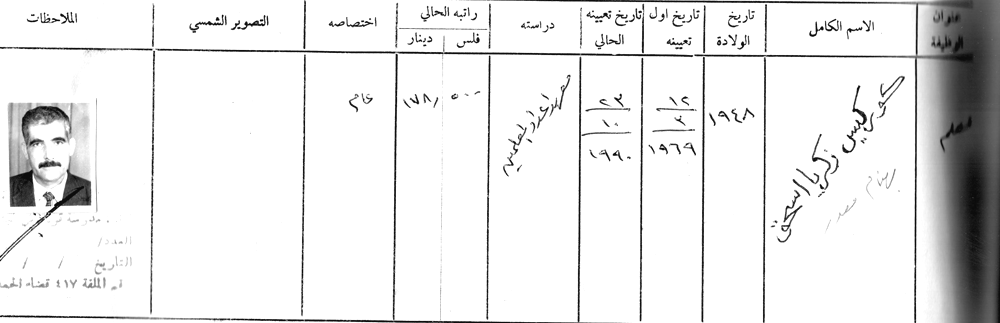 عنوان الوظيفة
الاسم الكامل
تاريخ الولادة
تاريخ اول تعيينه
تاريخ تعيينه الحالي
دراسته
راتبه الحالي
فلس دينار
اختصاصه
التصوير الشمسي
الملاحظات
معلم
كوركيس زكريا اسحق
١٩٤٨
١٢
٣
١٩٦٩
٢٣
١٠
١٩٩٠
معهد اعداد المعلمين
٥٠٠ ١٧٨/
عام
مدرسة
العدد/
التاريخ / /
الملفة ٤١٧ قضاء